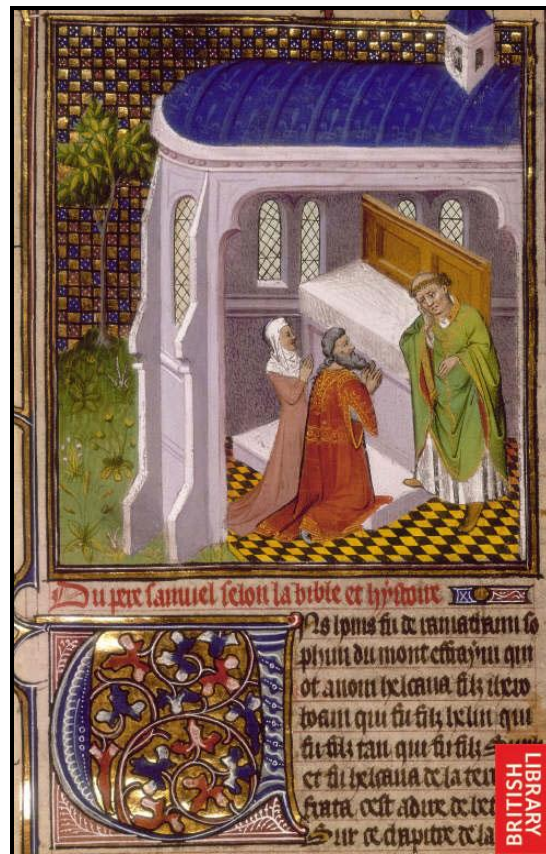 Du pere samuel selon la bible et hystoire
Uns homs fu de ramathaim so
phim du mont effraym qui
ot a nom helcana filz iero
boam qui fu filz heliu qui
fu filz tau qui fu filz
et fu helcana de la
frata cest a dire de bet
Sur ce chapitre de la
BRITISH
LIBRARY